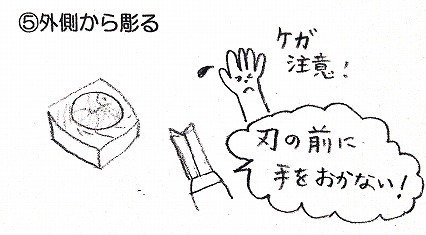 ⑤外側から彫る
ケガ
注意!
刃の前に
手をおかない!